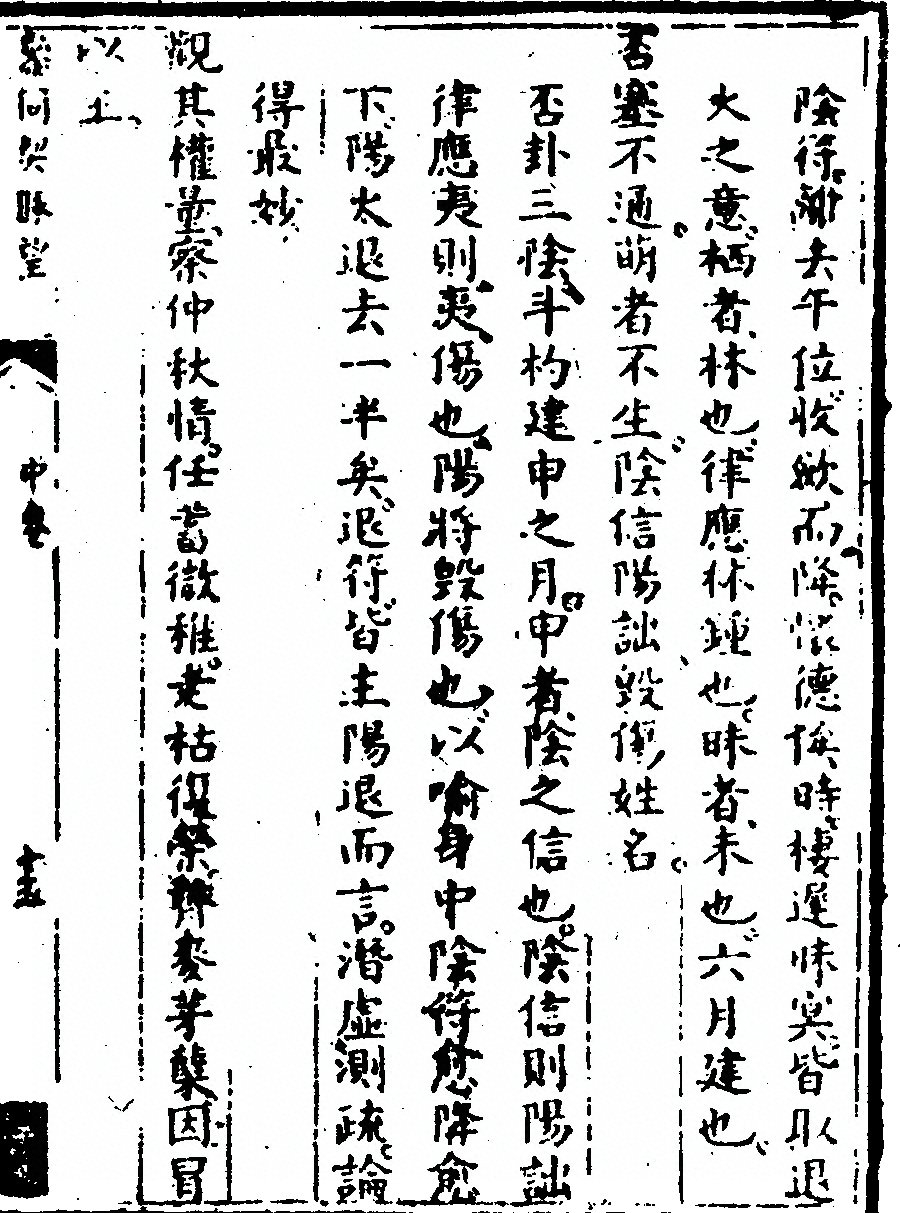 陰符離去午位收斂而降懷德俟時棲遲昧冥皆取退
火之意栖者林也律應林鍾也昧者未也六月建也
否塞不通萌者不生陰信陽詘毀傷姓名
否卦三陰斗杓建申之月申者陰之信也陰信則陽詘
律應夷則夷傷也陽將毀傷也以喻身中陰符愈降愈
下陽太退去一半矣退符皆主陽退而言潛虛測疏論
得最妙
觀其權量察仲秋情任蓄微稚老枯復榮薺麥芽蘖因冒
以生
中卷